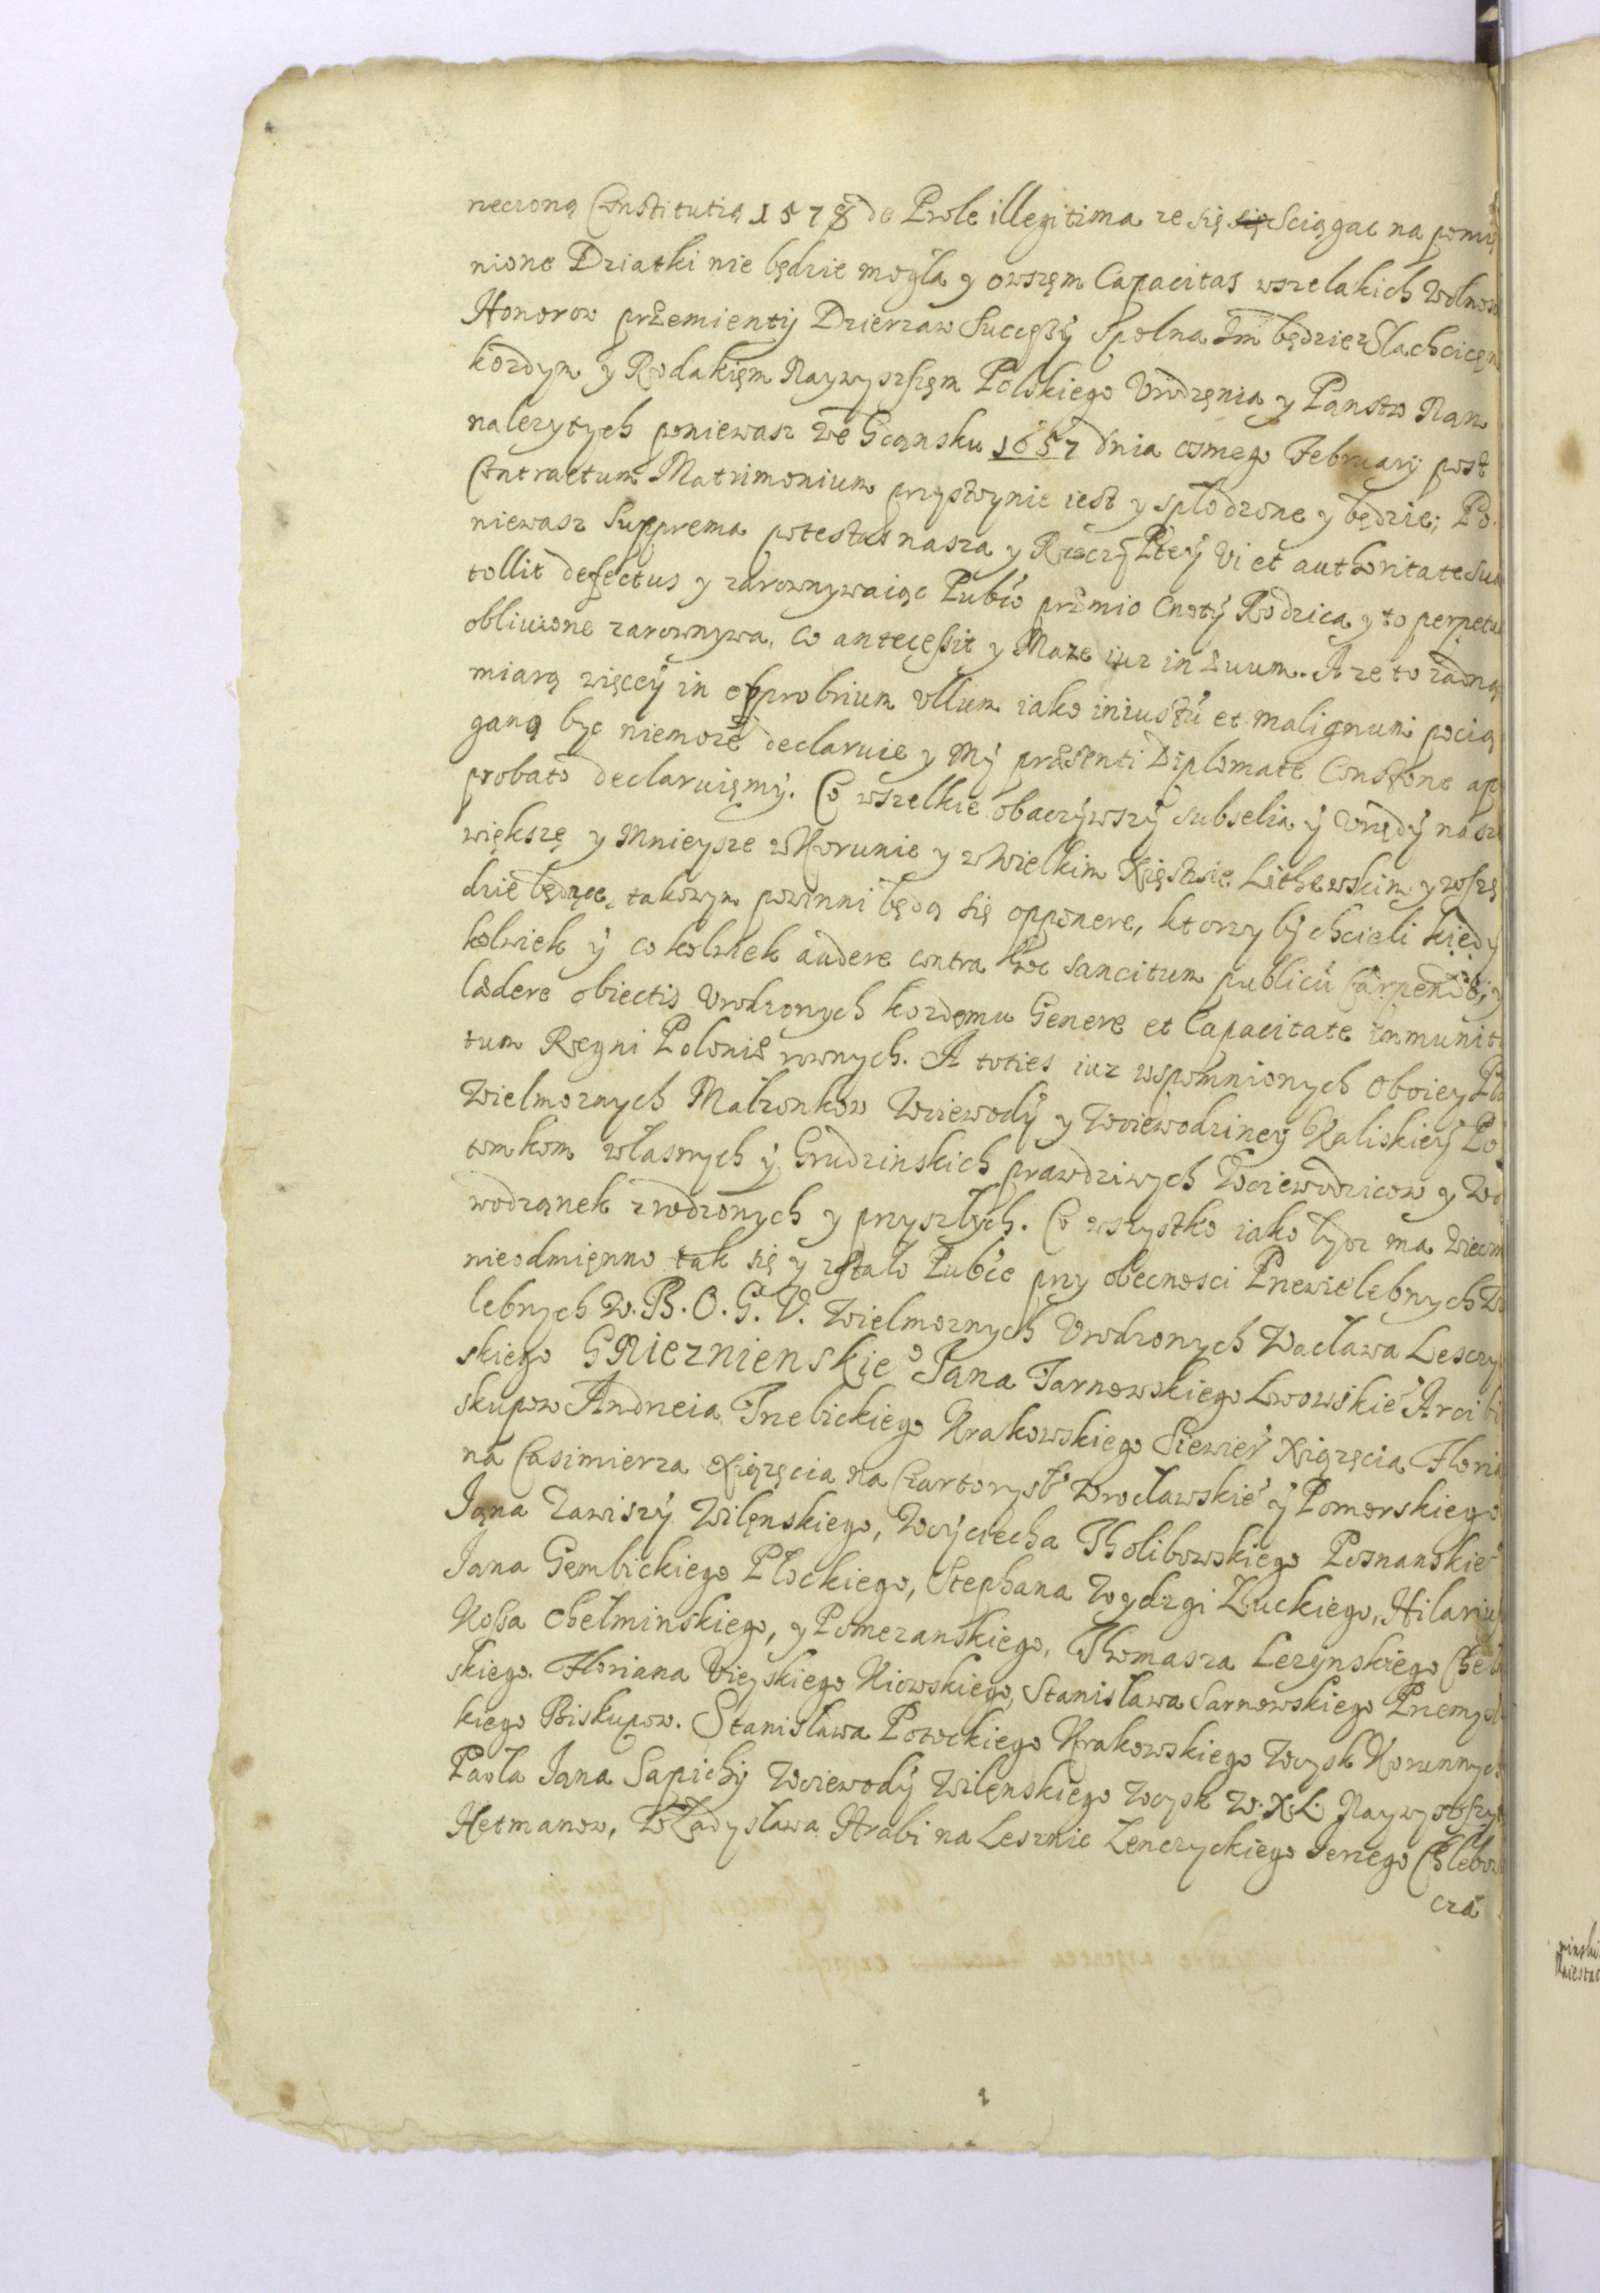 neczoną Constitutią 1578 de Prole illegitima ze się się Sciągac na pomię
nione Dziatki nie będzie mogła y owszęm Capacitas wszelakich Wolnos
Honorow przemienty Dzierzaw Successÿ Spolna Im będzie z Slachcicęm
kozdym y Rodakięm Naywyszszęm Polskiego Vrodzęnia y Panstw Nam
nalezytych poniewasz we Gdąnsku 1657 dnia osmego Februarÿ post
Contractum Matrimonium przystoynie iest y spłodzone y będzie; Po-
niewasz Supprema potestas nasza y Rzeczÿ Ptey Vi et authoritate sua
tollit defectus y zarownywaiąc Pubco præmio Cnotÿ Rodzica y to perpetuæ
obliuione zarownywa, co antecessit y Maze iuz in ęuum. A ze to zadną
miarą więceÿ in opprobrium vllum iako iniustũ et malignum pocią
ganą byc niemoze declaruie y Mÿ præsenti Diplomate Consżone ap
probato declaruięmÿ. Co wszelkie obaczÿwszÿ subselia ÿ Vrzędÿ nasze
większę y Mnieysze w Korunie y w Wielkim Xięstwie Lithewskim y wszę
dzie będące, takowym powinni będą się opponere, ktorzy bÿ chcieli kiedÿ
kolwiek ÿ co kolwiek audere contra hoc sancitum publicũ
lædere obiectis Vrodzonych kozdęmu Genere et Capacitate Immunita
tum Regni Poloniæ rownych. A toties iuz wspomnionych oboiey Płci
Wielmoznych Małzonkow Woiewodÿ y Woiewodziney Kaliskieÿ Po
tomkom własnych ÿ Grudzinskich prawdziwych Woiewodzicow y Wo
wodzanek zrodzonych y przyszłych. Co wszystko iako bydz ma Wiecz
nieodmięnno tak się y zstało Pubce przy obecnosci Przewielebnych W
lebnych W. B. O. G. V. Wielmoznych Vrodzonych Wacława Lesczy
skiego GNieznienskieo Jana Tarnowskiego Lwowskieo Arcibi
skupow Andrzeia Trzebickiego Krakowskiego Siewier Xiązęcia Floria
na Casimierza Xiązęcia na Czartorysko Wrocławskieo ÿ Pomorskiego
Jąna Zawiszÿ Wilęnskiego, Woÿciecha Tholibowskiego Posnanskieo
Jana Gembickiego Płockiego, Stephana Wydzgi Łuckiego, Hilariu
Kossa Chełminskiego, y Pomezanskiego, Thomasza Lezynskiego Cheł
skiego. Floriana Vieyskiego Kiowskiego, Stanisława Sarnowskiego Przemys
kiego Biskupow. Stanisława Potockiego Krakowskiego Woysk Korunnych
Pawla Jana Sapiehÿ Woiewodÿ Wilęnskiego Woysk W. X. L. Naywyszszych
Hetmanow, Władysława Hrabi na Lesznie Lenczyckiego Jerzego Chlebow
cza